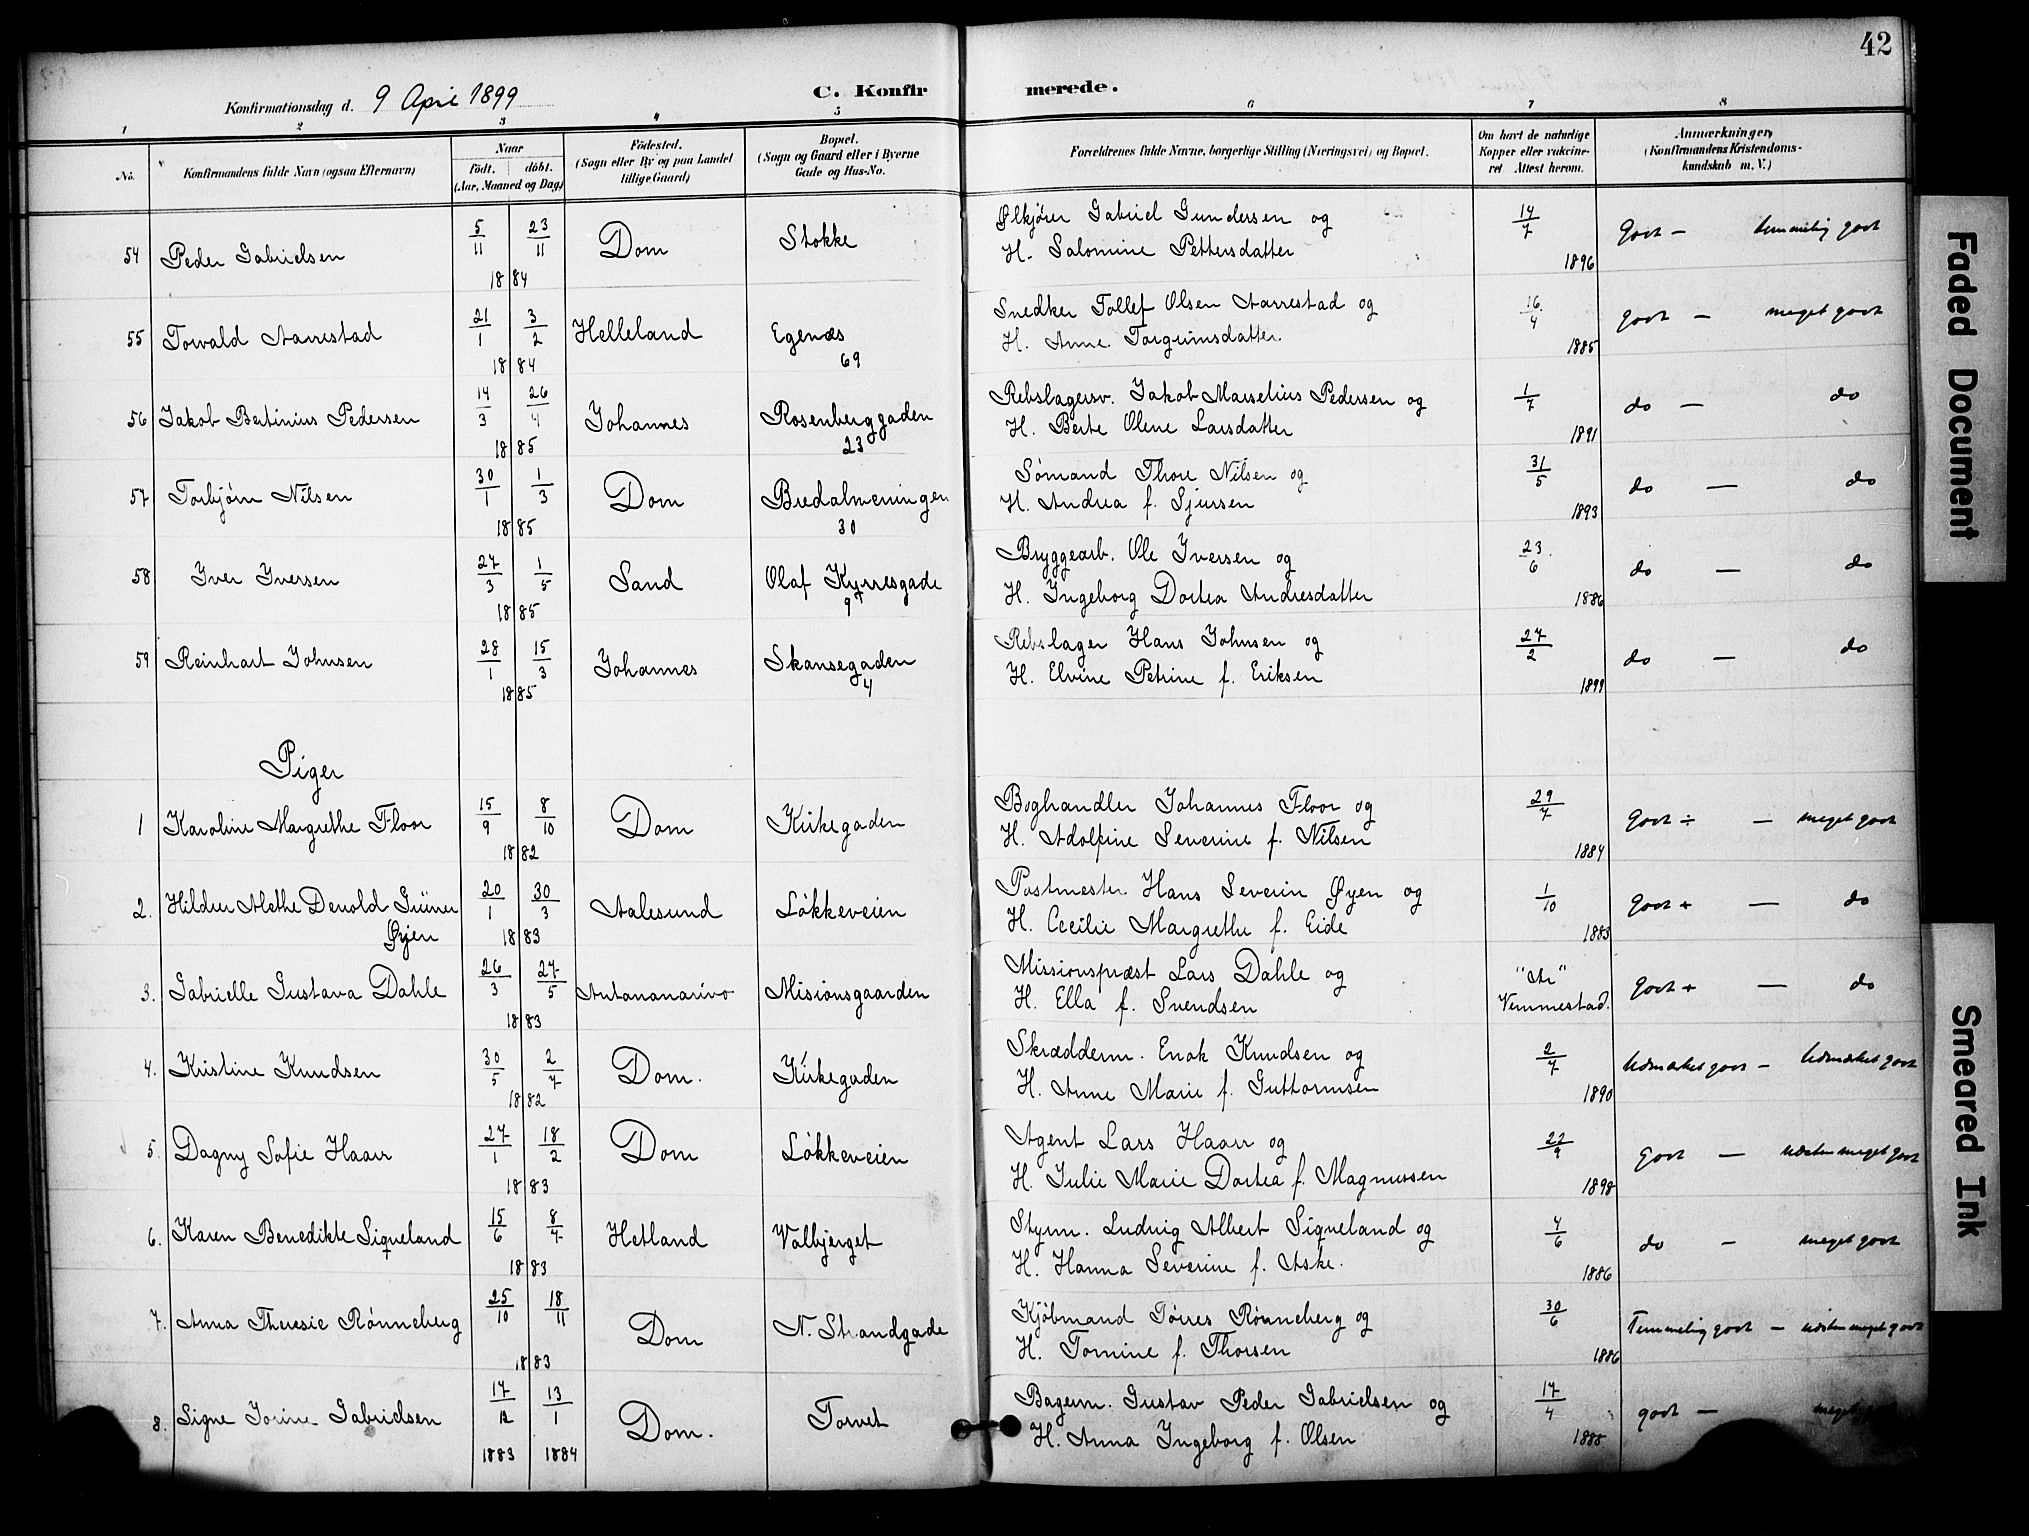 42
Konfirmationsdag d. 9 April 1899 C. Konfirmerede.
1 2 3 4 5 6 7 8
No. Konfirmandens fulde Navn (ogsaa Efternavn) Naar født, døbt. (Aar, Maaned og Dag) Fødested. (Sogn eller By og paa Landet tillige Gaard) Bopæl. (Sogn og Gaard eller i Byerne Gade og Hus-No. Forældrenes fulde Navne, borgerlige Stilling (Næringsvei) og Bopæl. Om havt de naturlige Kopper eller vakcineret Attest herom. Anmærkninger, (Konfirmandens Kristendomskundskab m. V.)
54 Peder Gabrielsen 5/11 23/11 1884 Dom Stokke Ølkjører Gabriel Gundersen og
H. Salomine Pettersdatter 14/7 1896 godt — temmelig godt
55 Torvald Aarrestad 21/1 3/2 1884 Helleland Egenæs 69 Snedker Tollef Olsen Aarrestad og
H. Anne Torgrimsdatter 16/4 1885 godt — meget godt
56 Jakob Bertinius Pedersen 14/3 26/4 1885 Johannes Rosenberggaden 23 Rebslagersv. Jakob Marselius Pedersen og
H. Berte Olene Larsdatter 1/7 1891 do — do
57 Torbjørn Nilsen 30/1 1/3 1885 Dom Bredalmeningen 30 Sømand Thore Nilsen og
H. Andrea f. Sjursen 31/5 1893 do — do
58 Iver Iversen 27/3 1/5 1885 Sand Olaf Kyrresgade 9 Bryggearb. Ole Iversen og
H. Ingeborg Dortea Andresdatter 23/6 1886 do — do
59 Reinhart Johnsen 28/1 15/3 1885 Johannes Skansegaden 4 Rebslager Hans Johnsen og
H. Elvine Petrine f. Eriksen 27/2 1899 do — do
Piger
1 Karoline Margrethe Floor 15/9 8/10 1882 Dom Kirkegaden Boghandler Johannes Floor og
H. Adolfine Severine f. Nilsen 29/7 1884 godt ÷ — meget godt
2. Hildur Alethe Devold Grüner Øyen 20/1 30/3 1883 Aalesund Løkkeveien Postmester Hans Severin Øyen og
H. Cecilie Margrethe f. Eide 1/10 1883 godt + — do
3. Gabrielle Gustava Dahle 26/3 27/5 1883 Antananarivo Misionsgaarden Missionspræst Lars Dahle og
H. Ella f. Svendsen Vemmestad. godt + — do
4. Kristine Knudsen 30/5 2/7 1882 Dom. Kirkegaden Skrædderm. Enok Knudsen og
H. Anne Marie f. Guttormsen 2/7 1890 Udmærket godt — Udmærket godt
5. Dagny Sofie Haarr 27/1 18/2 1883 Dom Løkkeveien Agent Lars Haarr og
H. Julie Marie Dortea f. Magnussen 22/9 1898 godt — næsten meget godt
6. Karen Benedikte Siqveland 15/6 8/7 1883 Hetland Valbjerget Styrm. Ludvig Albert Siqveland og
H. Hanna Severine f. Aske. 4/6 1886 do — meget godt
7. Anna Theresie Rønneberg 25/10 18/11 1883 Dom N. Strandgade Kjøbmand Tørres Rønneberg og
H. Tomine f. Thorsen 30/6 1886 Temmelig godt — næsten meget godt
8. Signe Jorine Gabrielsen 17/12 1883 13/1 1884 Dom. Torvet Bagerm. Gustav Peder Gabrielsen og
H. Anna Ingeborg f. Olsen 17/4 1885 godt — meget
Faded Document
Smeared Ink